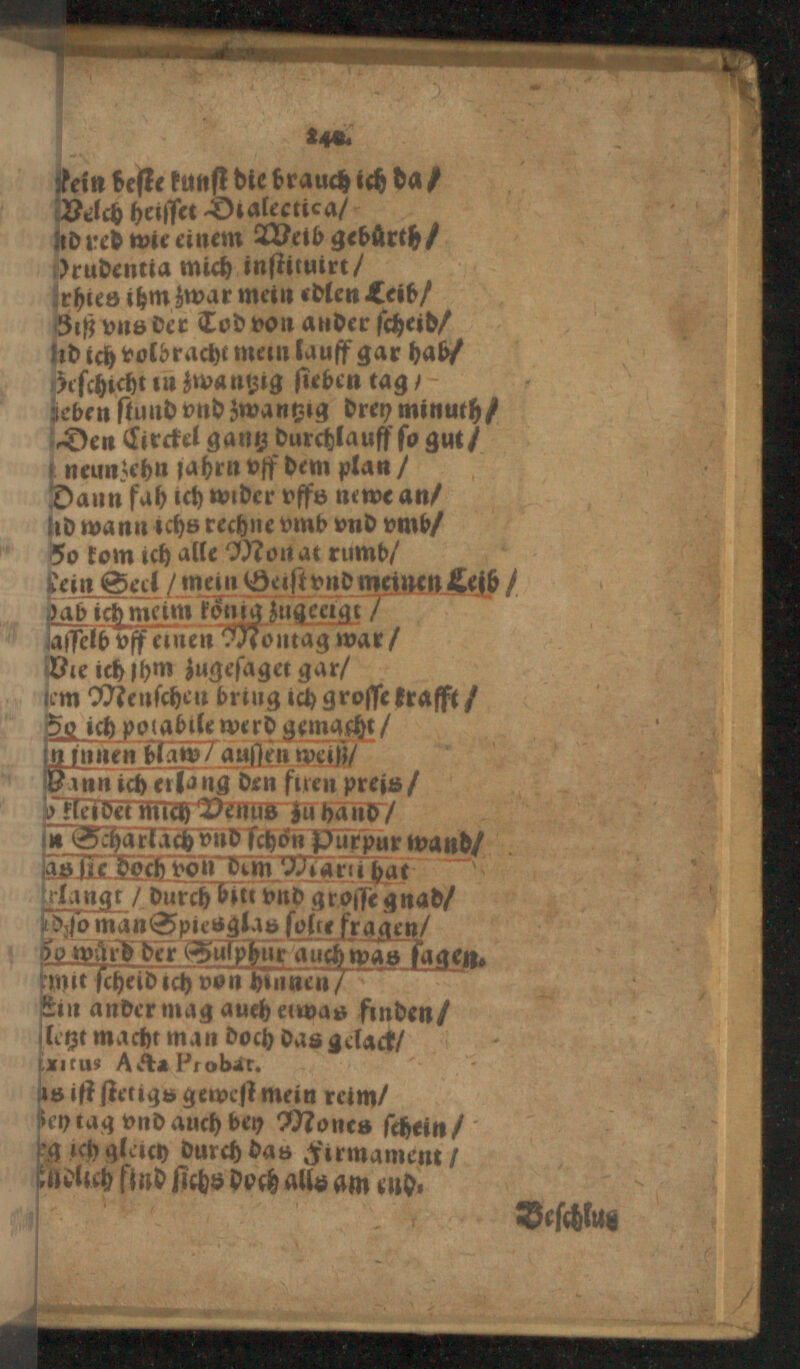 240.
kein beſte kunſt die brauch ich da /
Welch heiſſet Dialectica /
nd red wie einem Weib gebürth /
Prudentia mich inſtituirt /
rhies ihm zwar mein edlen Leib /
Biß vns der Tod von ander ſcheid /
nd ich volbracht mein lauff gar hab /
Geſchicht in zwantzig ſieben tag /
ieben ſtund vnd zwantzig drey minuth /
Den Circkel gantz durchlauff ſo gut /
neunzehn jahrn vff dem plan /
Dann fah ich wider vffs newe an /
nd wann ichs rechne vmb vnd vmb /
So kom ich alle Monat rumb /
ein Seel / mein Geiſt vnd meinen Leib /
hab ich meim könig zugeeigt /
aſſelb vff einen Montag war /
Wie ich jhm zugeſaget gar /
em Menſchen bring ich groſſe krafft /
So ich potabile werd gemacht /
n jnnen blaw / auſſen weiß /
Wann ich erlang den fixen preis /
o kleidet mich Venus zu hand /
n Scharlach vnd ſchön Purpur wand /
as ſie doch von dem Marti hat
rlangt / durch bitt vnd groſſe gnad /
d ſo man Spiesglas ſolte fragen /
So würd der Sulphur auch was ſagen.
mit ſcheid ich von hinnen /
Ein ander mag auch etwas finden /
letzt macht man doch das gelack /
xitus Acta Probat.
as iſt ſtetigs geweſt mein reim /
bey tag vnd auch bey Mones ſchein /
g ich gleich durch das Firmament /
Endlich find ſichs doch alls am end.
Beſchlus